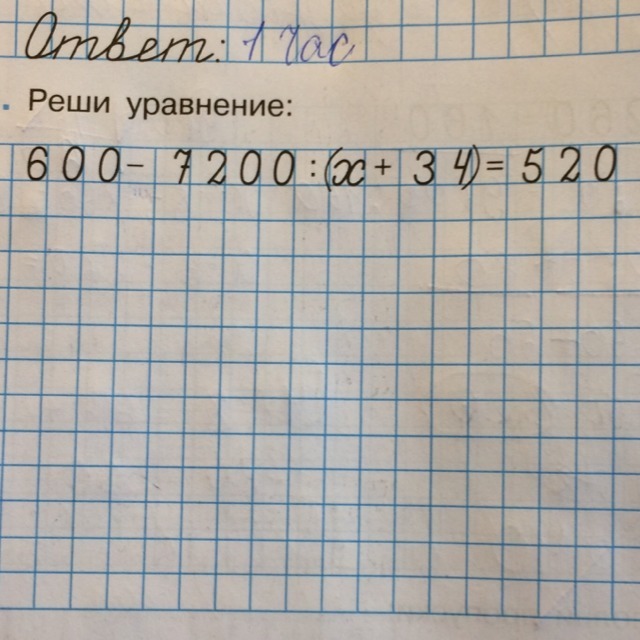 Ответ: 1 час
Реши уравнение:
600- 7200:(x+ 34)= 520